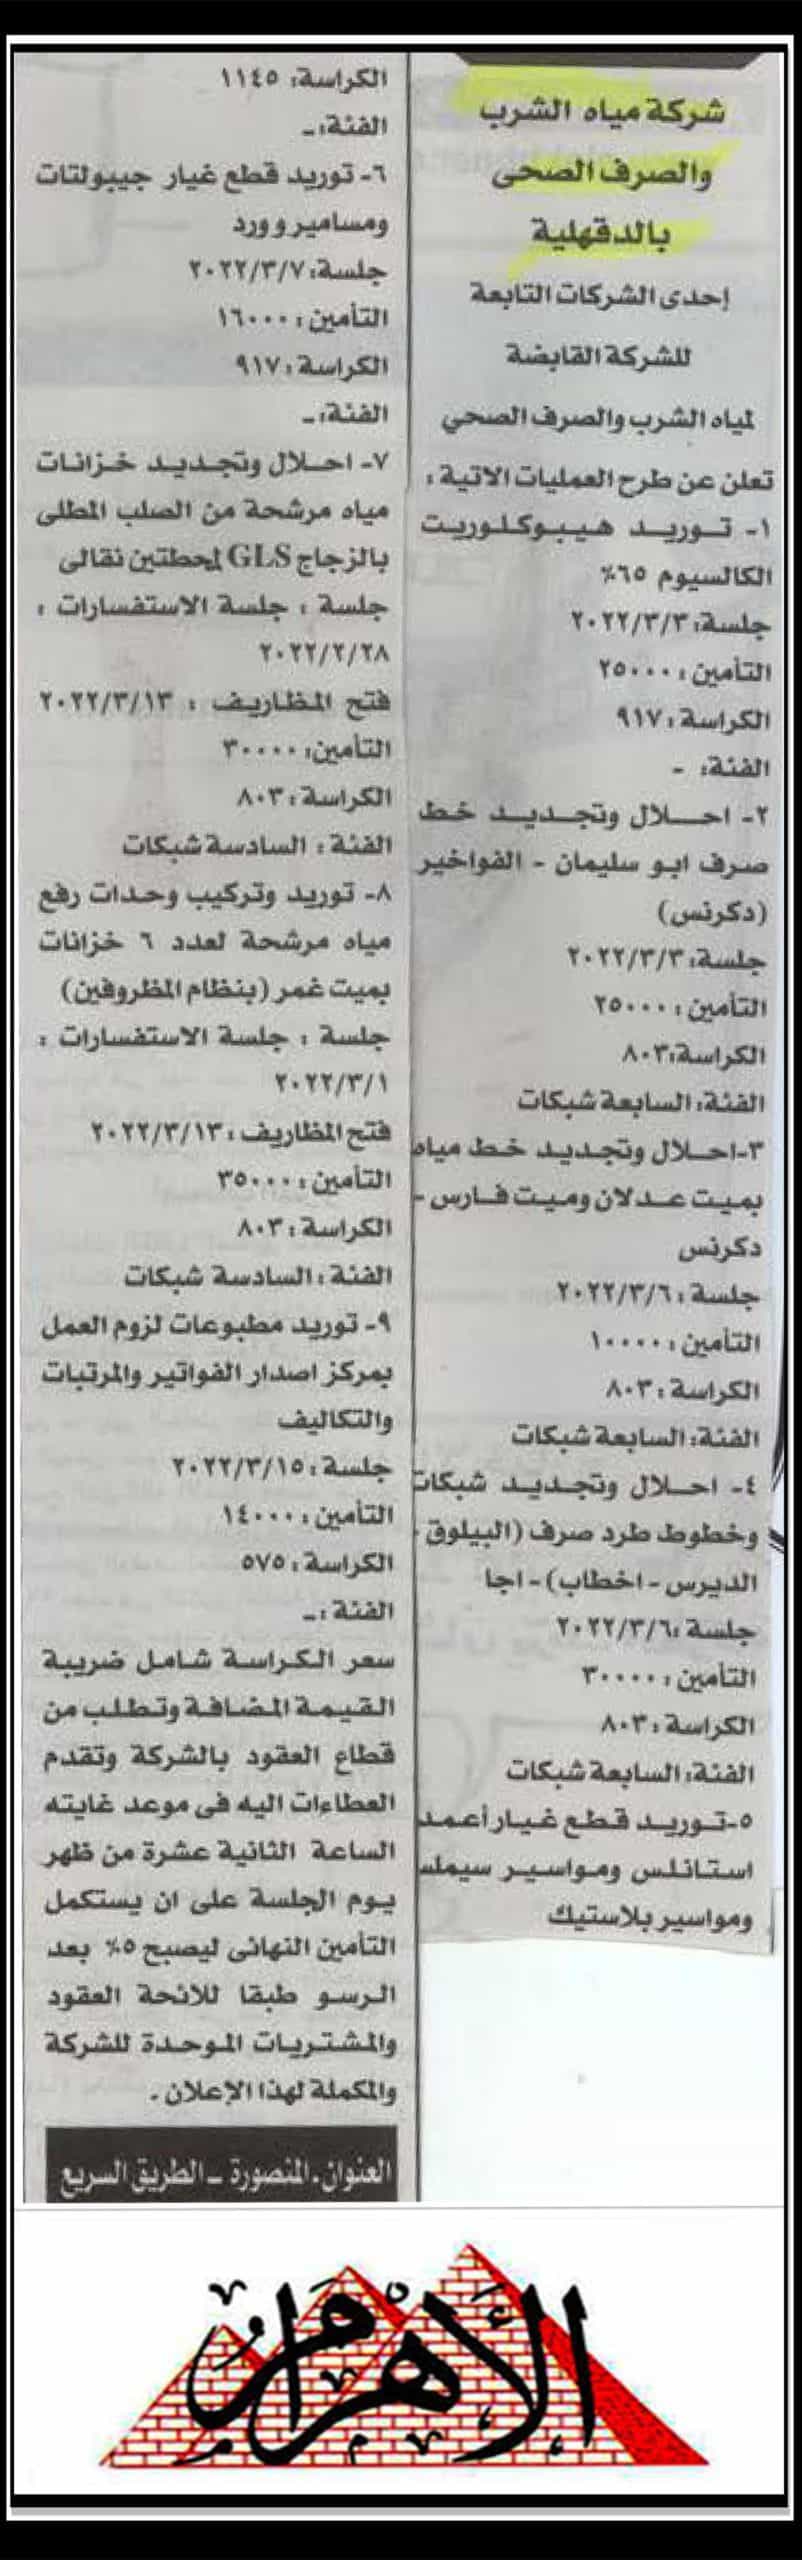 شركة مياه الشرب
والصرف الصحى
بالدقهلية
إحدى الشركات التابعة
للشركة القابضة
لمياه الشرب والصرف الصحي
تعلن عن طرح العمليات الاتية :
١- توريد هيبوكلوريت
الكالسيوم ٦٥٪
جلسة: ٢٠٢٢/٣/٣
التأمين : ٢٥٠٠٠
الكراسة : ٩١٧
الفئة: -
٢- احلال وتجديد خط
صرف ابو سليمان - الفواخير
(دكرنس)
جلسة: ٢٠٢٢/٣/٣
التأمين : ٢٥٠٠٠
الكراسة: ٨٠٣
الفئة: السابعة شبكات
٣-احلال وتجديد خط مياه
بميت عدلان وميت فارس -
دكرنس
جلسة : ٢٠٢٢/٣/٦
التأمين : ١٠٠٠٠
الكراسة : ٨٠٣
الفئة: السابعة شبكات
٤- احلال وتجديد شبكات
وخطوط طرد صرف (البيلوق -
الديرس - اخطاب) - اجا
جلسة : ٢٠٢٢/٣/٦
التأمين : ٣٠٠٠٠
الكراسة : ٨٠٣
الفئة: السابعة شبكات
٥-توريد قطع غيار أعمد
استانلس ومواسير سيملس
ومواسير بلاستيك
الكراسة: ١١٤٥
الفئة: -
٦- توريد قطع غيار جيبولتات
ومسامير وورد
جلسة: ٢٠٢٢/٣/٧
التأمين : ١٦٠٠٠
الكراسة : ٩١٧
الفئة: -
٧- احلال وتجديد خزانات
مياه مرشحة من الصلب المطلى
بالزجاج GLS لمحطتين نقالى
جلسة : جلسة الاستفسارات :
٢٠٢٢/٢/٢٨
فتح المظاريف : ٢٠٢٢/٣/١٣
التأمين: ٣٠٠٠٠
الكراسة : ٨٠٣
الفئة : السادسة شبكات
٨- توريد وتركيب وحدات رفع
مياه مرشحة لعدد ٦ خزانات
بميت غمر (بنظام المظروفين)
جلسة : جلسة الاستفسارات :
٢٠٢٢/٣/١
فتح المظاريف : ٢٠٢٢/٣/١٣
التأمين : ٣٥٠٠٠
الكراسة : ٨٠٣
الفئة : السادسة شبكات
٩- توريد مطبوعات لزوم العمل
بمركز اصدار الفواتير والمرتبات
والتكاليف
جلسة : ٢٠٢٢/٣/١٥
التأمين : ١٤٠٠٠
الكراسة : ٥٧٥
الفئة : -
سعر الكراسة شامل ضريبة
القيمة المضافة وتطلب من
قطاع العقود بالشركة وتقدم
العطاءات اليه فى موعد غايته
الساعة الثانية عشرة من ظهر
يوم الجلسة على ان يستكمل
التأمين النهائى ليصبح ٥٪ بعد
الرسو طبقا للائحة العقود
والمشتريات الموحدة للشركة
والمكملة لهذا الإعلان .
العنوان . المنصورة - الطريق السريع
الأهرام